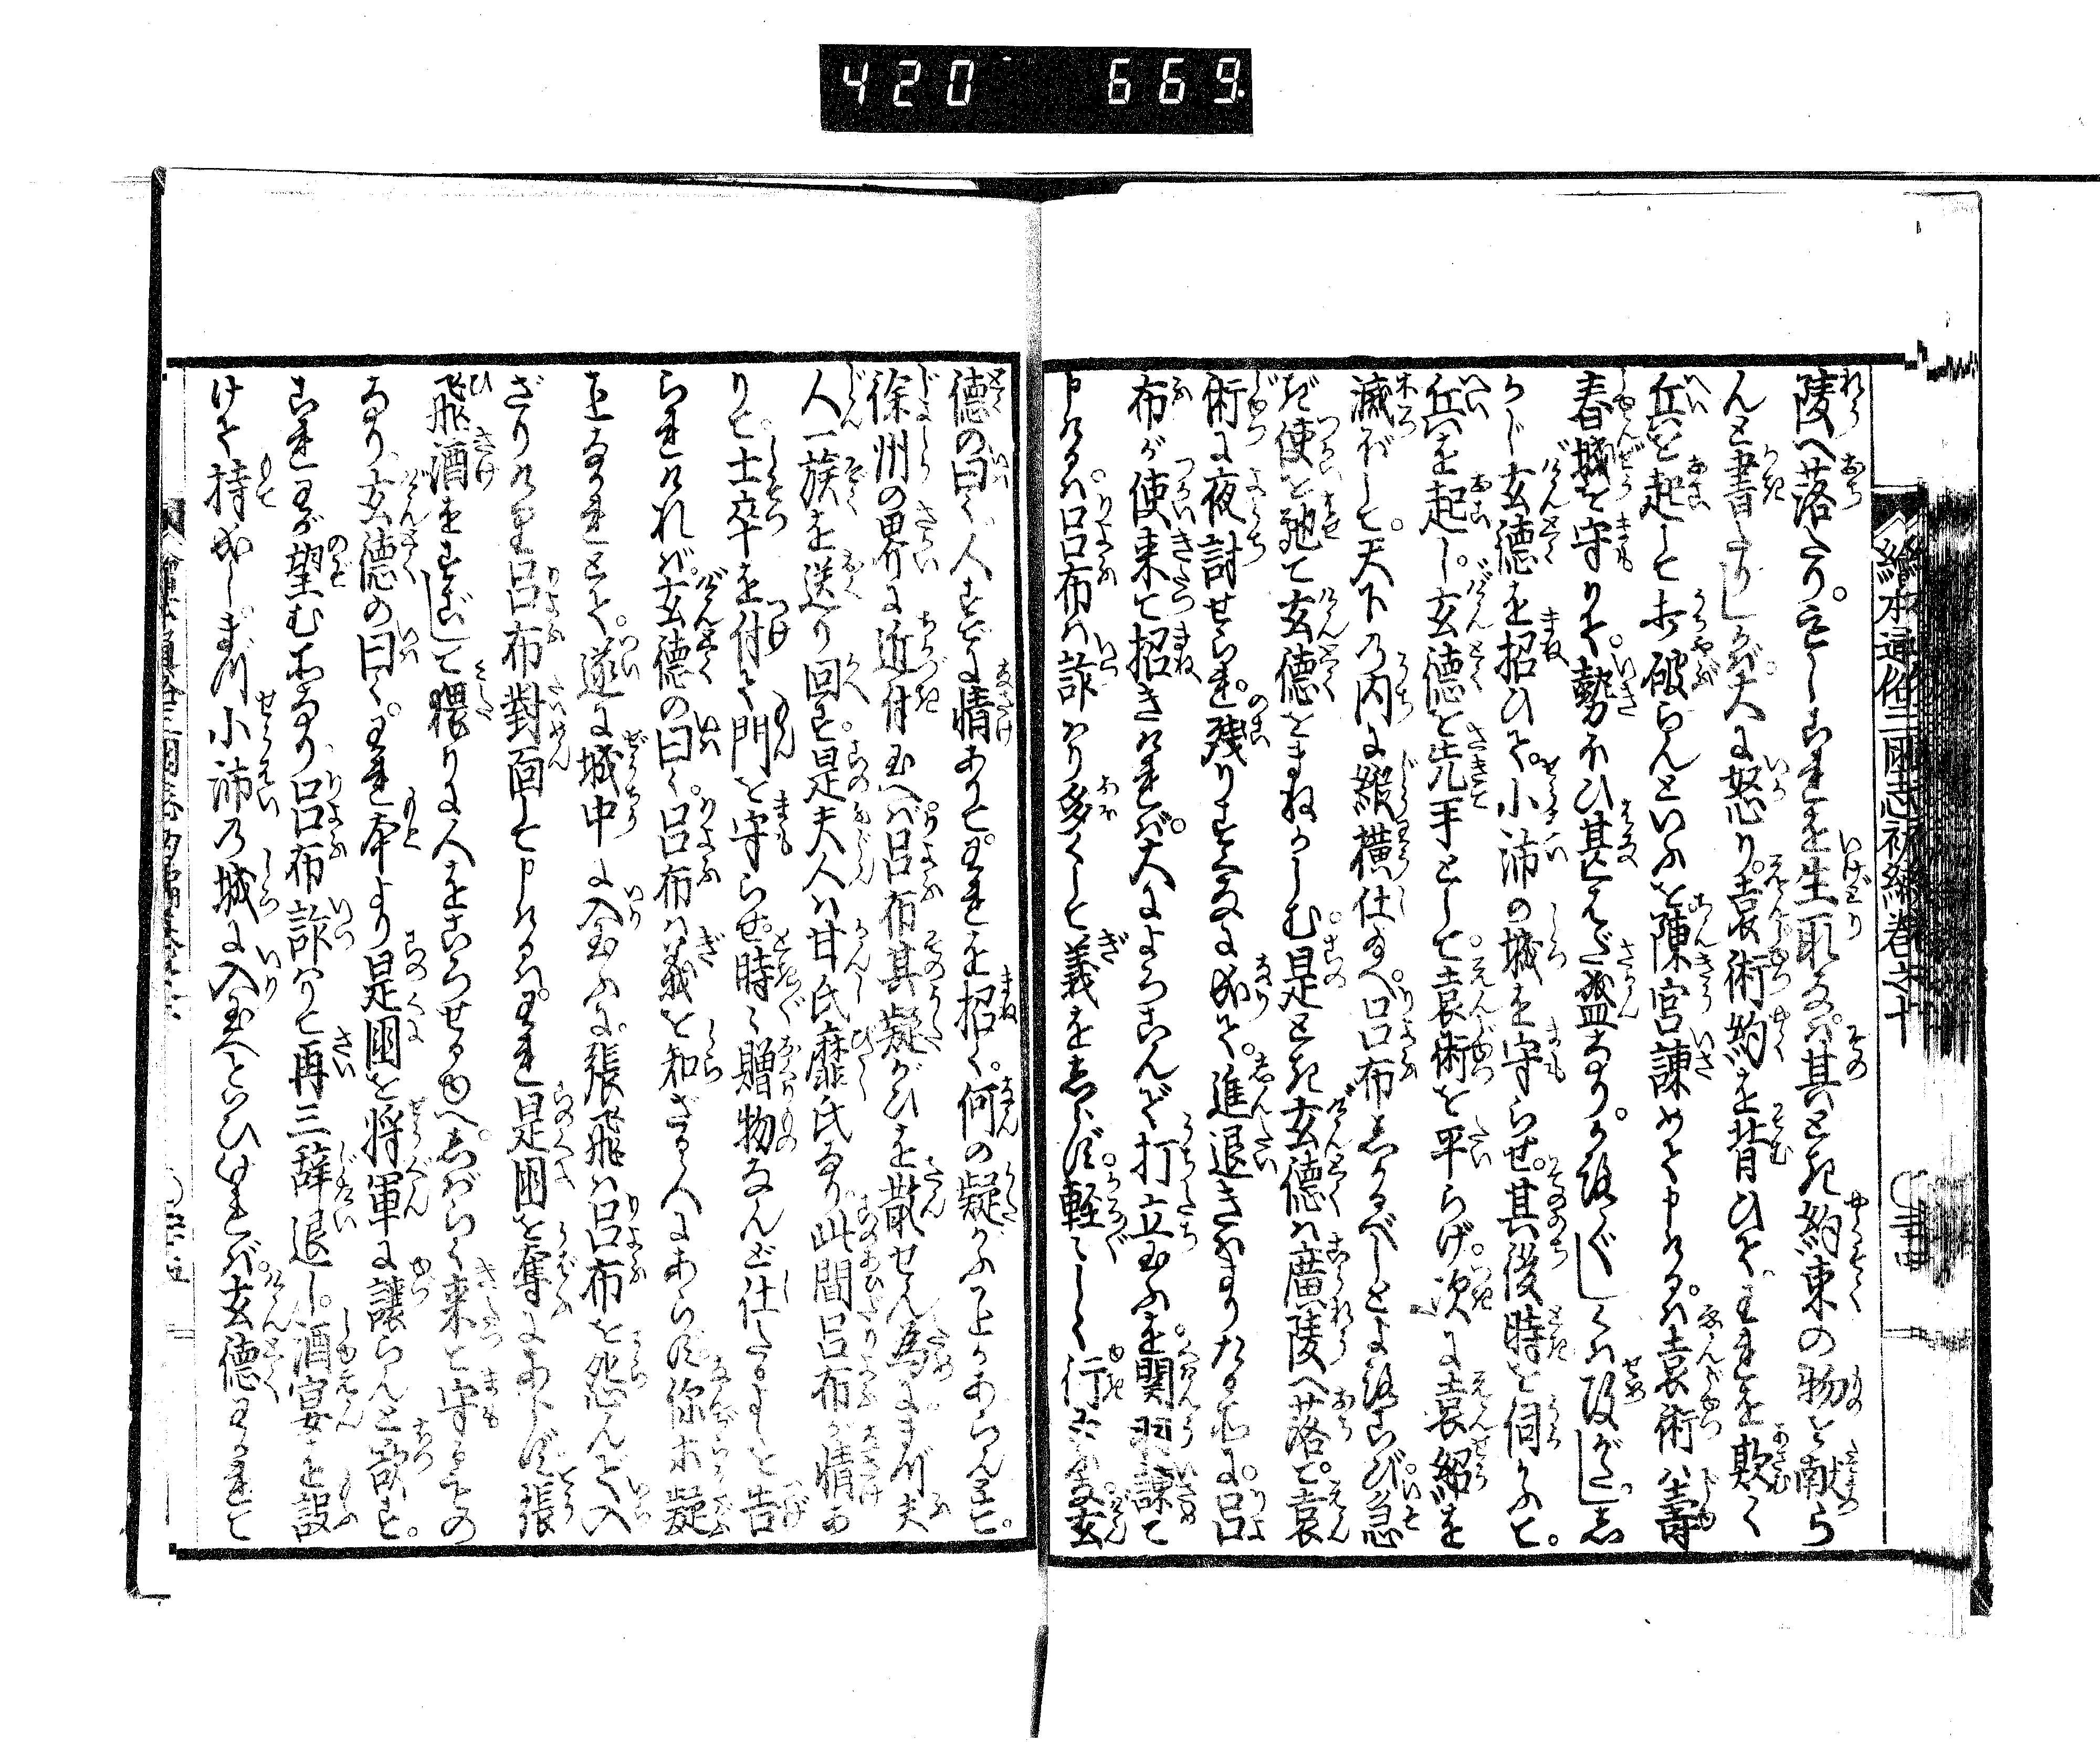 420 669
繪本通俗三國志初編卷之十
陵へ落たり。定しこれを生取なバ。其とき約束の物を献ら
んと書たりしかバ。大に怒り。袁術約を背ひて。われを欺く
兵を起して打破らんといふを。陳宮諫めて申けるハ。袁術ハ壽
春城を守りて。勢ひ甚だ盛なり。かろ〴〵しくハ攻がたし。
らじ玄徳を招ひて。小沛の城を守らせ。其後時を伺ふて。
兵を起し。玄徳を先手として。袁術を平らげ。次に袁紹を
滅ぼして。天下の内に縦横仕給へ。呂布しかるべしとよろこび。急
ぎ使を馳て玄徳をまねかしむ。是とき玄徳ハ廣陵へ落て。袁
術に夜討せられ。残りすくなに成て。進退きハまりたる所に。呂
布が使来て招きければ。大によろこんで打立玉ふを。関羽諫て
申けるハ。呂布ハ詐わり多くして義をしらず。軽〻しく行
徳の曰く。人すでに情ありて。われを招く。何の疑がふことかあらんとて。
徐州の界に近付玉へバ。呂布其疑がひを散せん為に。まづ夫
人一族を送り回す。是夫人ハ甘氏糜氏なり。此間呂布が情あ
りて。士卒を付て門を守らせ。時〻贈物なんど仕たるよしを告
られければ。玄徳の曰く。呂布ハ義を知ざる人にあらず。你等疑
ことなかれとて。遂に城中に入玉ふに。張飛ハ呂布を怨んで入
ざりけり。呂布對面して申けるハ。われ是國を奪にあらず。張
飛酒をすごして猥りに人をころせるゆへ。しばらく来て守るもの
なり。玄徳の曰く。われ本より是國を将軍に譲らんと欲す。
これわが望む所なり。呂布詐りて再三辞退し。酒宴を設
けて持成し。まづ小沛の城に入玉へといひければ。玄徳わかれて